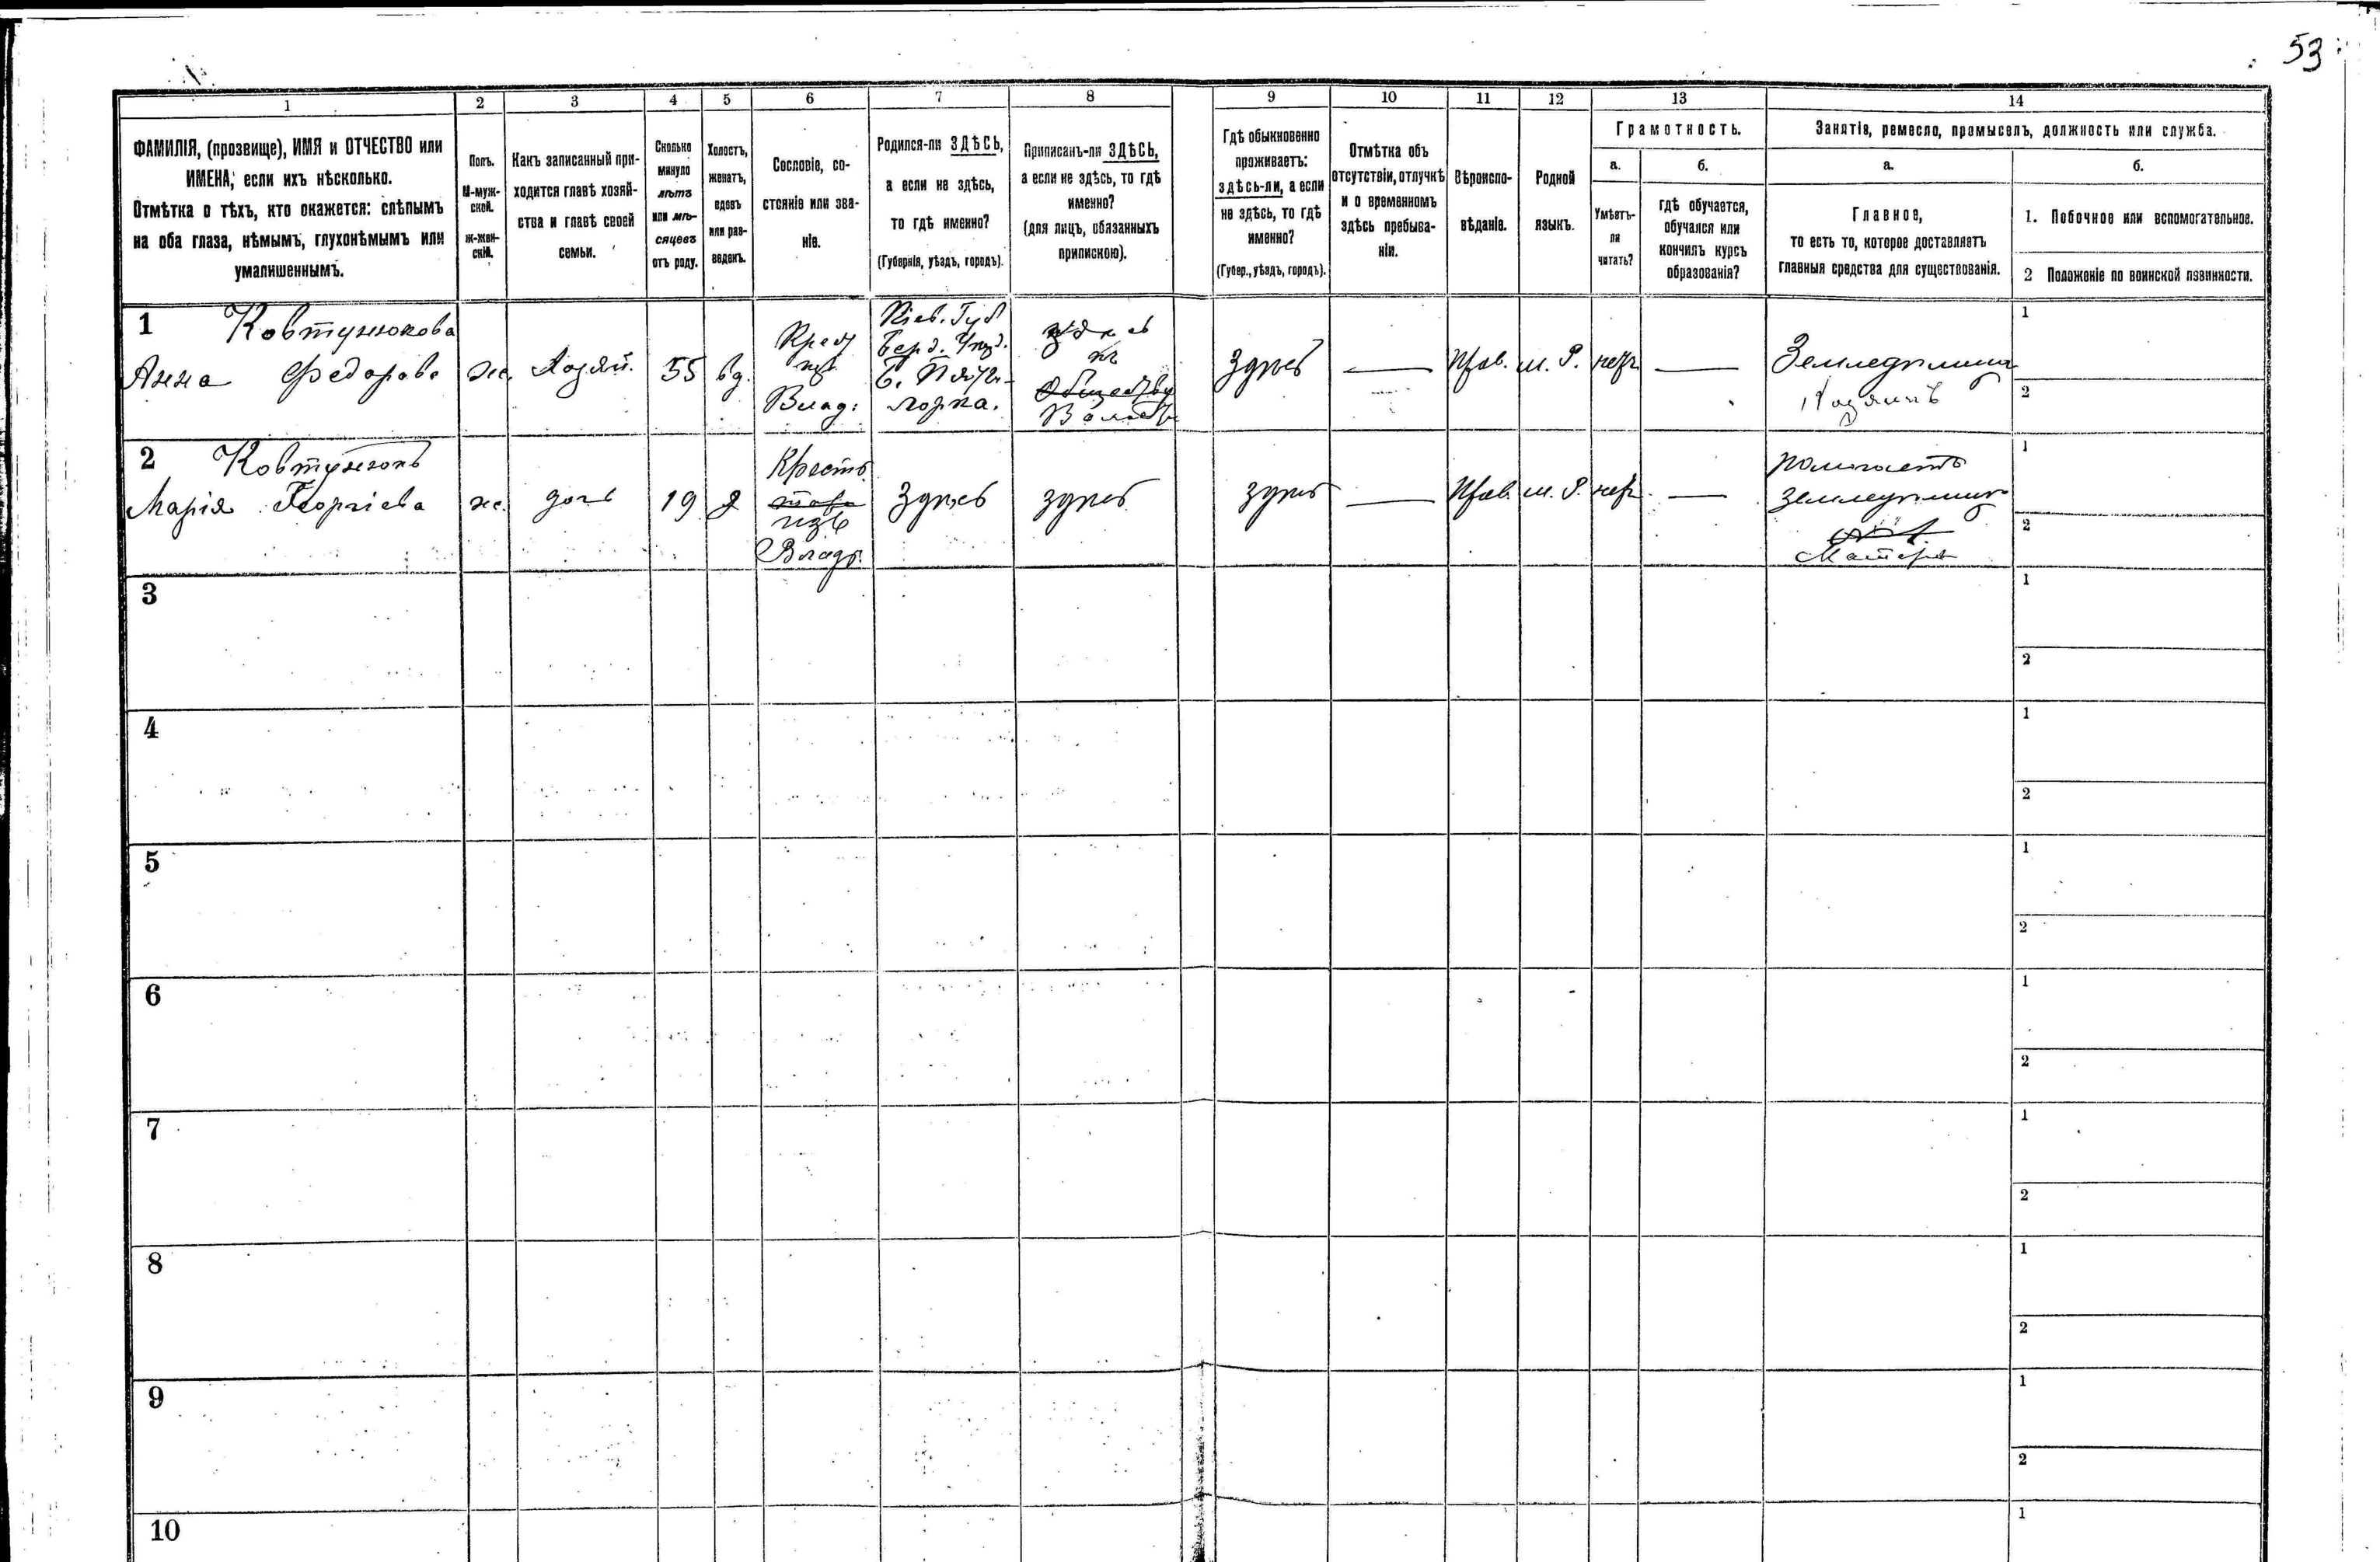 53
1
2
3
4
5
6
7
8
9
10
11
12
13
14
ФАМИЛІЯ, (прозвище), ИМЯ и ОТЧЕСТВО или
ИМЕНА, если ихъ нѣсколько.
Отмѣтка о тѣхъ, кто окажется: слѣпымъ
на оба глаза, нѣмымъ, глухонѣмымъ или
умалишеннымъ.
Полъ.
М-муж-
ской.
Ж-жен-
скій.
Какъ записанный при-
ходится главѣ хозяй-
ства и главѣ своей
семьи.
Сколько
минуло
лѣтъ
или мѣ-
сяцевъ
отъ роду.
Холостъ,
женатъ,
вдовъ
или раз-
веденъ.
Сословіе, со-
стояніе или зва-
ніе.
Родился-ли ЗДѢСЬ,
а если не здѣсь,
то гдѣ именно?
(Губернія, уѣздъ, городъ).
Приписанъ-ли ЗДѢСЬ,
а если не здѣсь, то гдѣ
именно?
(для лицъ, обязанныхъ
припискою).
Гдѣ обыкновенно
проживаетъ:
здѣсь-ли, а если
не здѣсь, то гдѣ
именно?
(Губер., уѣздъ, городъ).
Отмѣтка объ
отсутствіи, отлучкѣ
и о временномъ
здѣсь пребыва-
ніи.
Вѣроиспо-
вѣданіе.
Родной
языкъ.
Грамотность.
а.
Умѣетъ-
ли
читать?
б.
гдѣ обучается,
обучался или
кончилъ курсъ
образованія?
Занятіе, ремесло, промыселъ, должность или служба.
а.
Главное,
то есть то, которое доставляетъ
главныя средства для существованія.
б.
1. Побочное или вспомогательное.
2 Положеніе по воинской повинности.
1 Ковтунюкова
Анна Федорова
же.
Хозяй.
55
вд.
Крест
изъ
Влад.
Кіев. Губ
Берд. Уѣзд.
Б. Пяти-
горка.
здѣсь
къ
Обществу
здѣсь
—
Прав.
м. Р.
нѣтъ
—
Земледѣлица
Хозяинъ
1
2
2 Ковтунюкъ
Марія Георгіева
же.
дочь
19
д
Крестъ.
изъ
Владѣ.
Здѣсь
здѣсь
здѣсь
—
Прав.
м. Р.
нѣтъ
—
помогаетъ
Матери
1
2
3
1
2
4
1
2
5
1
2
6
1
2
7
1
2
8
1
2
9
1
2
10
1